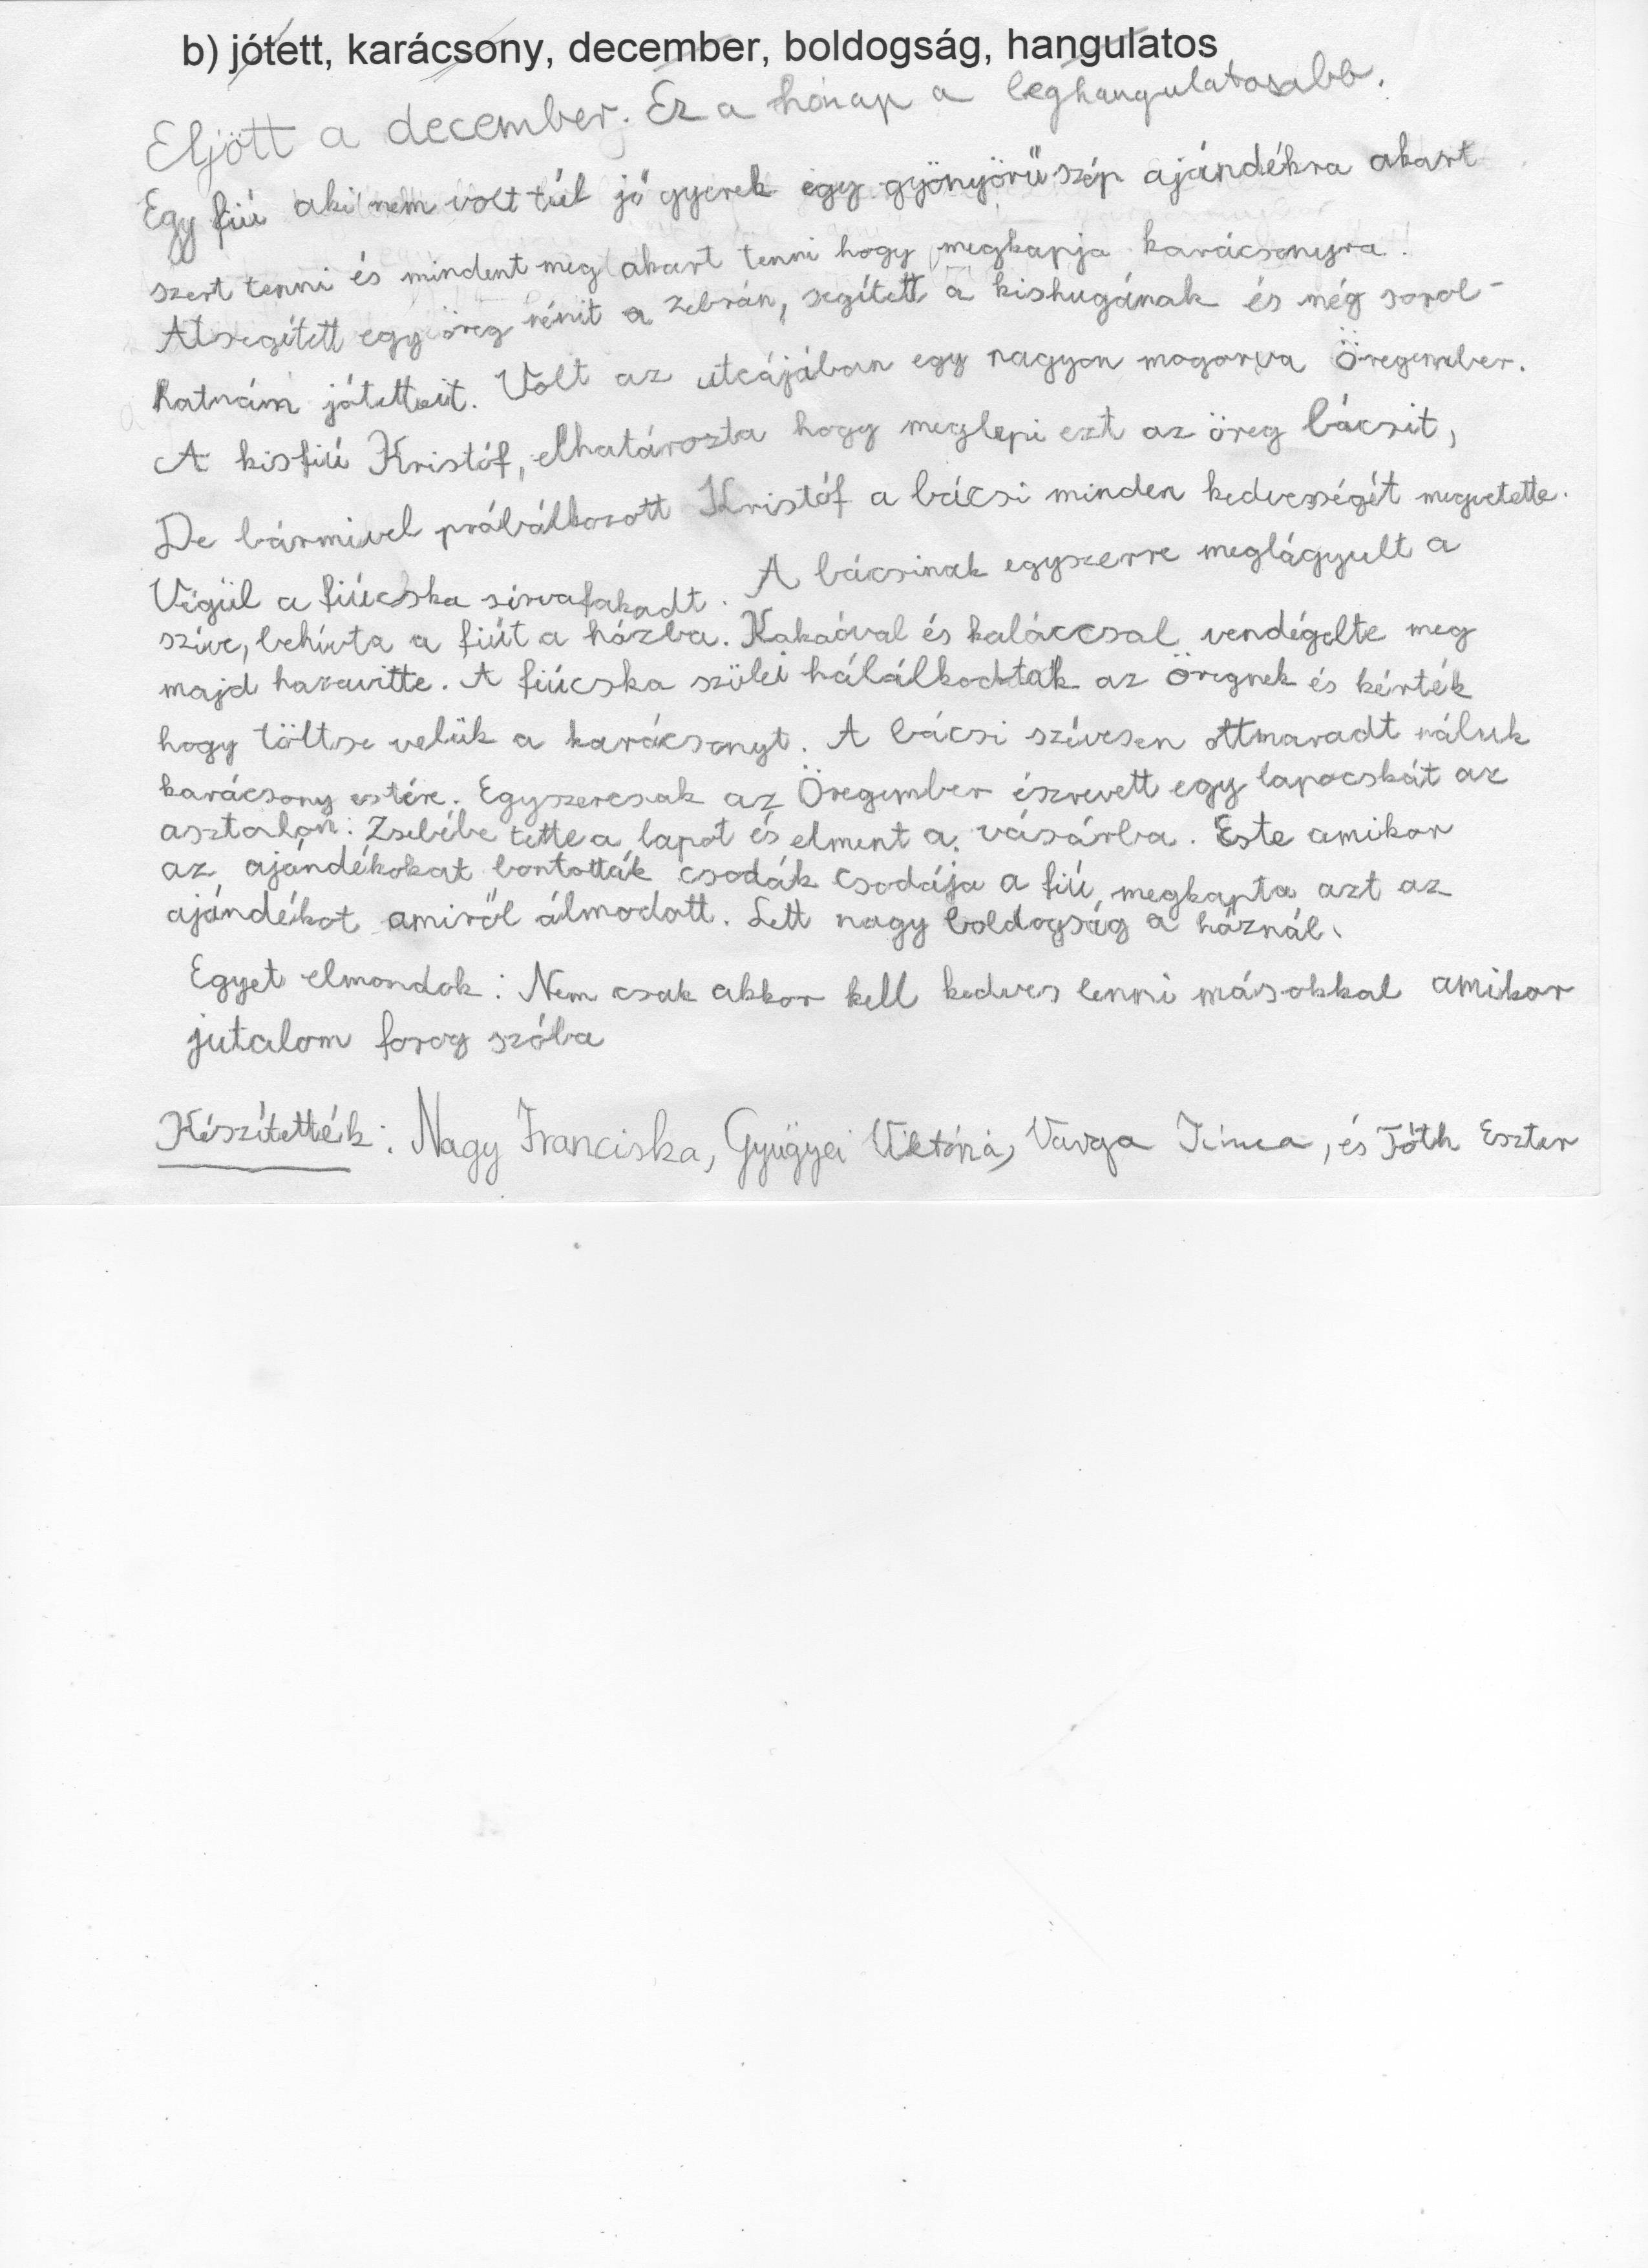 b) jótett, karácsony, december, boldogság, hangulatos
Eljött a december. Ez a hónap a leghangulatosabb.
Egy fiú aki nem volt túl jó gyerek egy gyönyörű szép ajándékra akart
szert tenni és mindent meg akart tenni hogy megkapja karácsonyra.
Átsegített egy öreg nénit a zebrán, segített a kishugának és még sorol-
hatnám jótetteit. Volt az utcájában egy nagyon mogorva Öregember.
A kisfiú Kristóf, elhatározta hogy meglepi ezt az öreg bácsit,
De bármivel próbálkozott Kristóf a bácsi minden kedvességét megvetette.
Végül a fiúcska sírvafakadt. A bácsinak egyszerre meglágyult a
szíve, behívta a fiút a házba. Kakaóval és kaláccsal vendégelte meg
majd hazavitte. A fiúcska szülei hálálkodtak az Öregnek és kérték
hogy töltse velük a karácsonyt. A bácsi szívesen ottmaradt náluk
karácsony estére. Egyszercsak az Öregember észrevett egy lapocskát az
asztalon. Zsebébe tette a lapot és elment a vásárba. Este amikor
az ajándékokat bontották csodák csodája a fiú megkapta azt az
ajándékot amiről álmodott. Lett nagy boldogság a háznál.
Egyet elmondok: Nem csak akkor kell kedves lenni másokkal amikor
jutalom forog szóba
Készítették: Nagy Franciska, Gyügyei Viktória, Varga Tímea, és Tóth Eszter